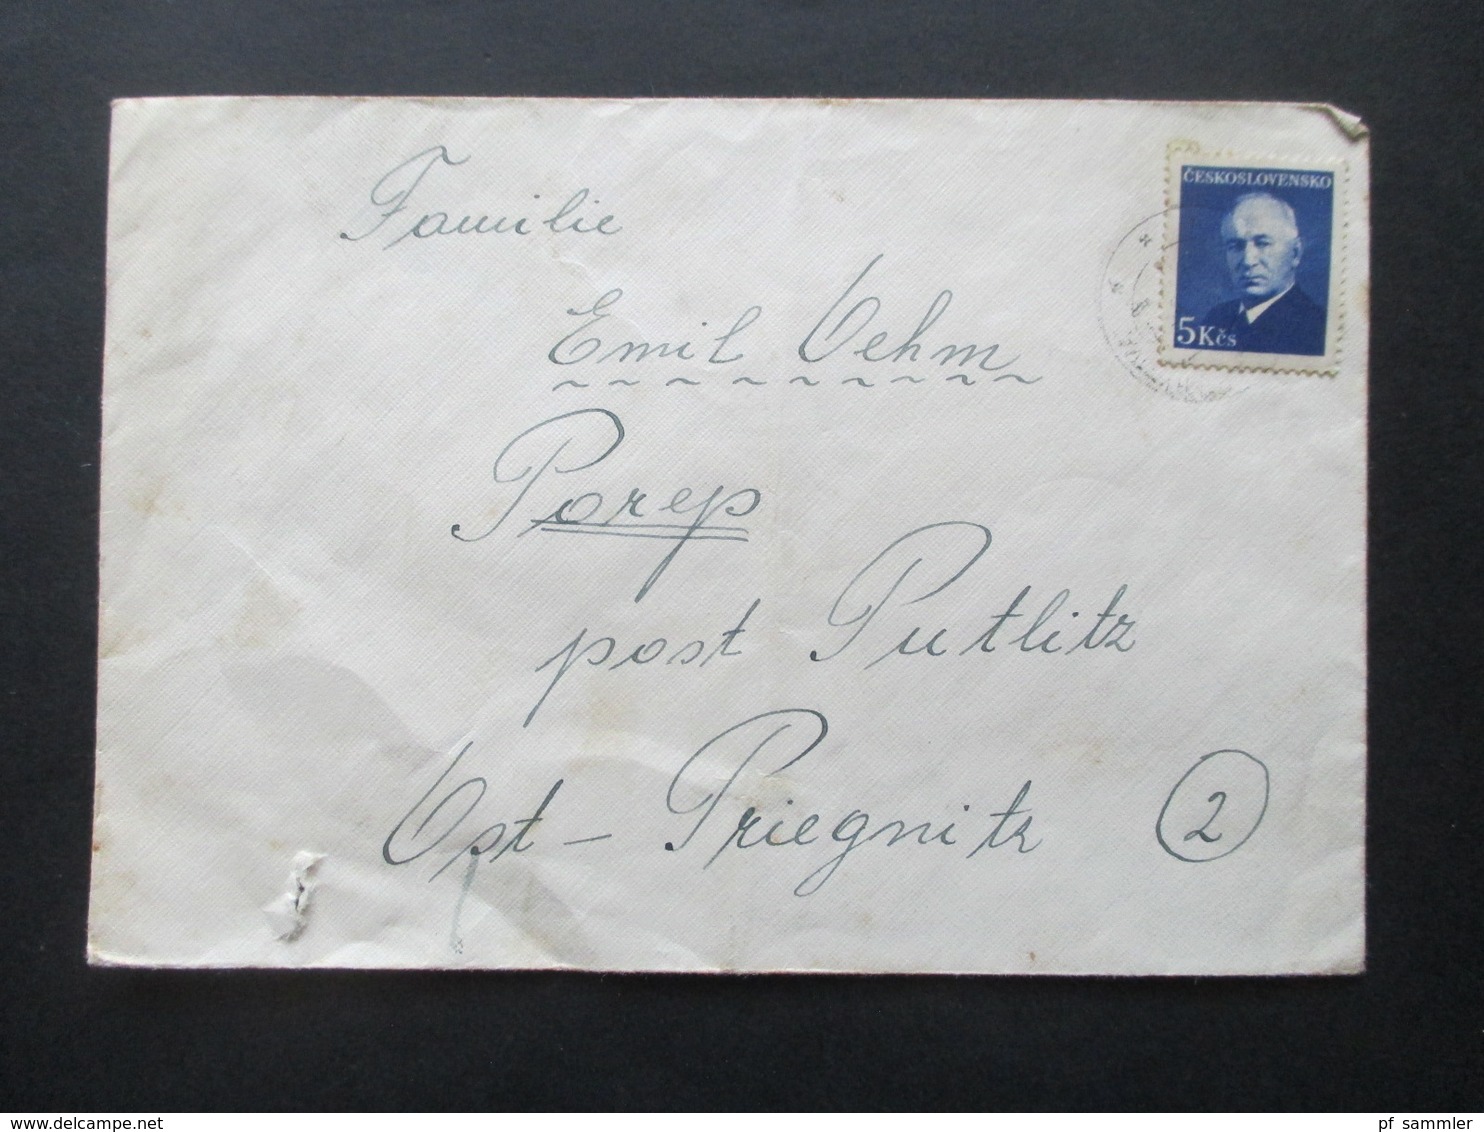 Familie
ČESKOSLOVENSKO
5Kčs
Emil Oehm
Porep
post Putlitz
Ost - Priegnitz 2
delcampe.net
pf_sammler